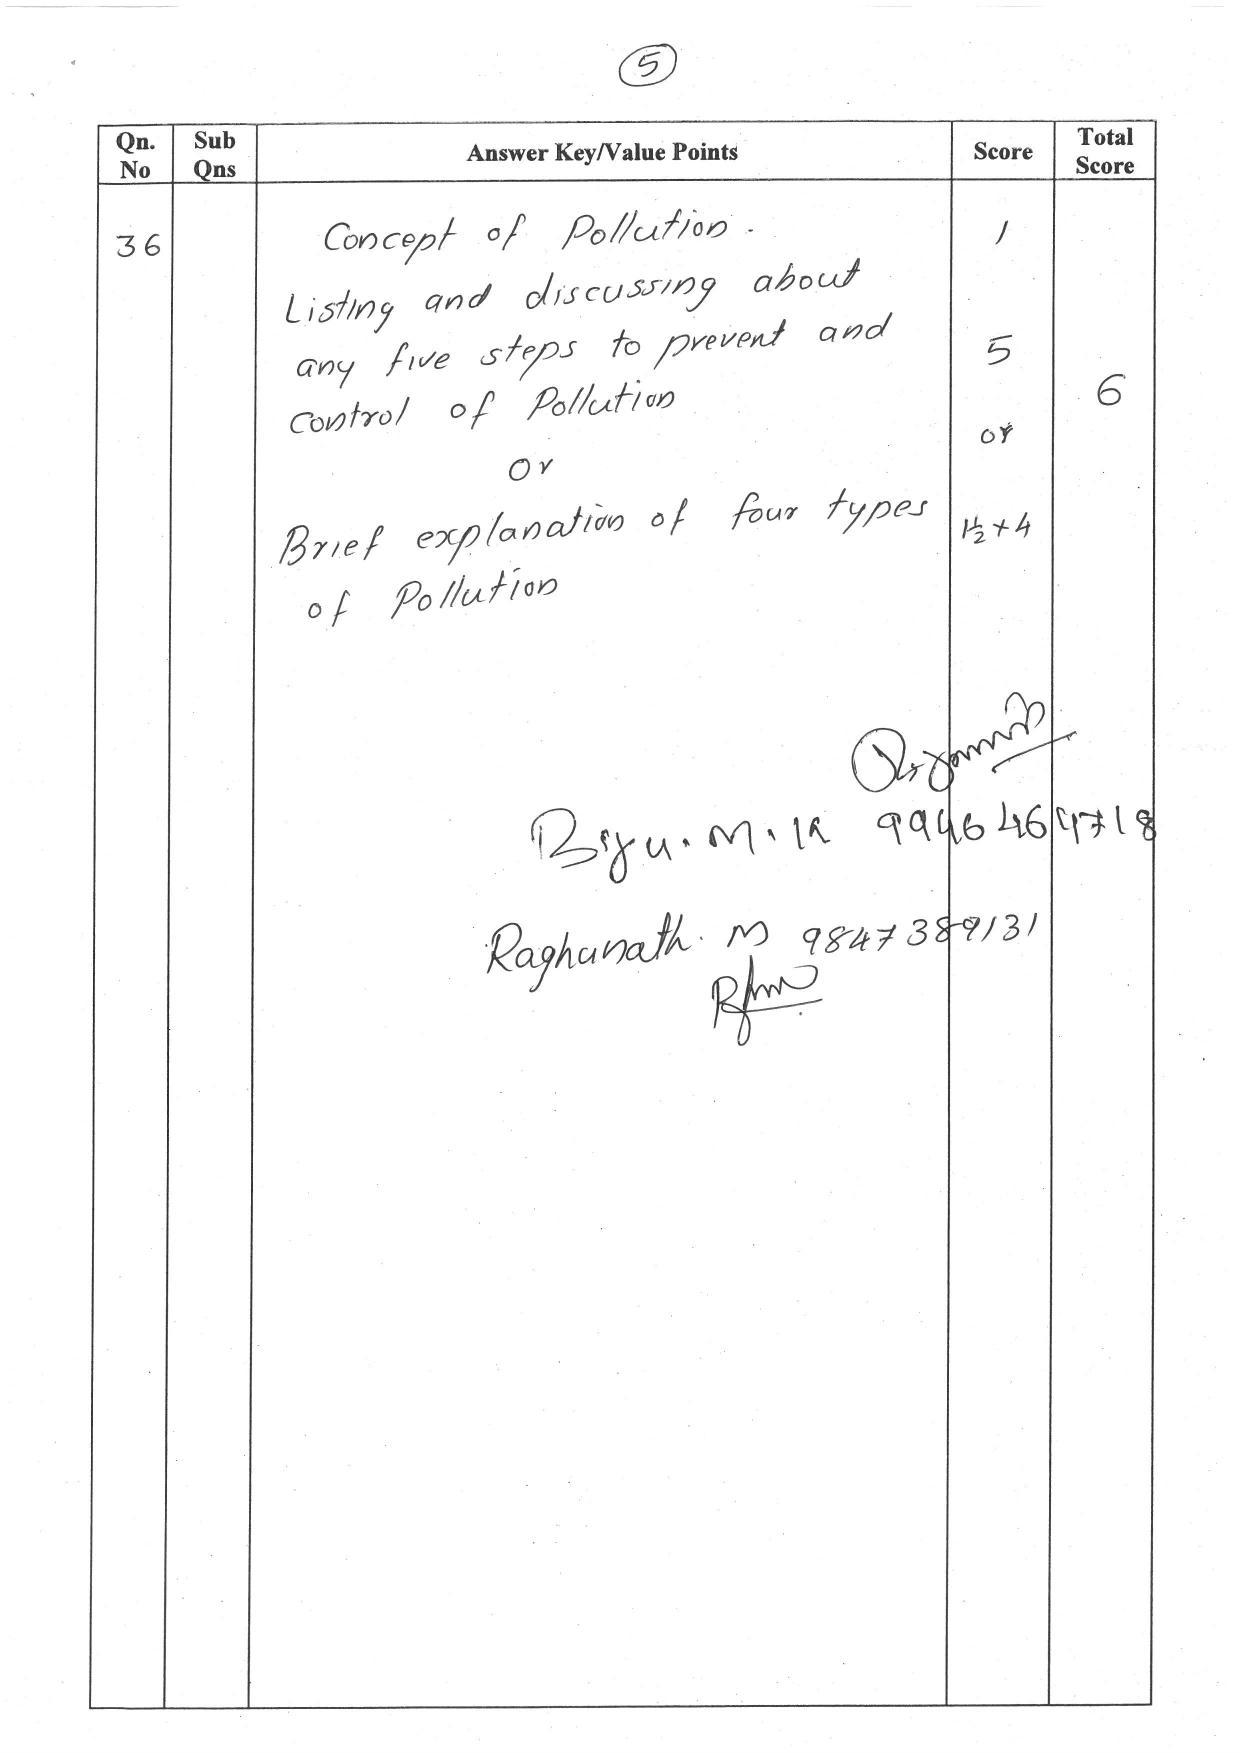 5
Qn. No | Sub Qns | Answer Key/Value Points | Score | Total Score
36 | Concept of Pollution. | 1
Listing and discussing about
any five steps to prevent and | 5
control of Pollution | 6
or
Or
Brief explanation of four types | 1½ + 4
of Pollution
Biju. M. K 9946464718
Raghunath. M 9847389131